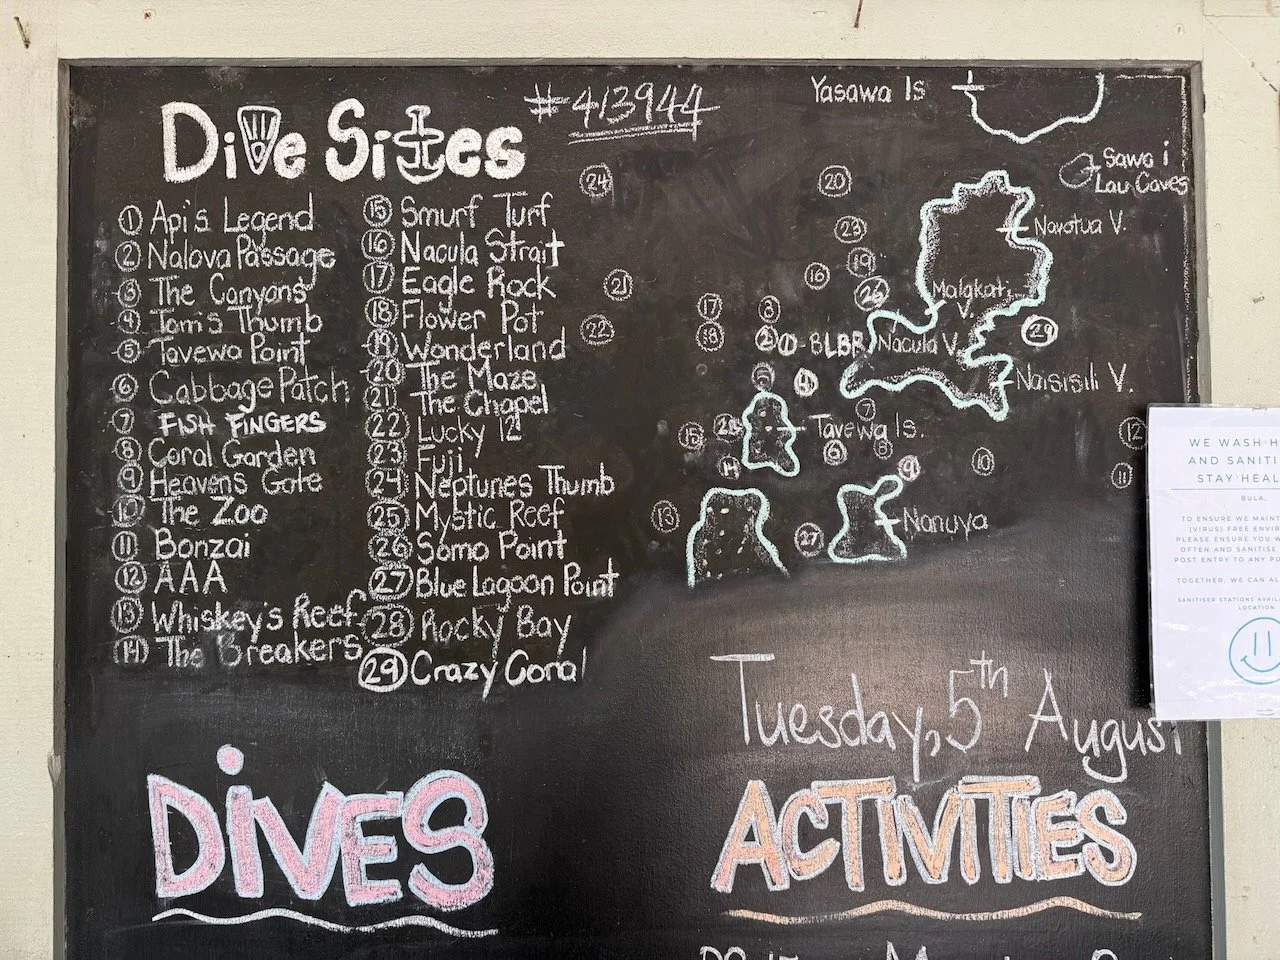 Dive Sites
#413944
① Api's Legend
② Nalova Passage
③ The Canyons
④ Tom's Thumb
⑤ Tavewa Point
⑥ Cabbage Patch
⑦ FISH FINGERS
⑧ Coral Garden
⑨ Heavens Gate
⑩ The Zoo
⑪ Bonzai
⑫ AAA
⑬ Whiskey's Reef
⑭ The Breakers
⑮ Smurf Turf
⑯ Nacula Strait
⑰ Eagle Rock
⑱ Flower Pot
⑲ Wonderland
⑳ The Maze
㉑ The Chapel
㉒ Lucky 12
㉓ Fuji
㉔ Neptunes Thumb
㉕ Mystic Reef
㉖ Somo Point
㉗ Blue Lagoon Point
㉘ Rocky Bay
㉙ Crazy Coral
Yasawa Is
Sawa i
Lau Caves
㉔
⑳
㉓
Navotua V.
⑲
⑯
㉖
Malakati
V.
⑰
③
⑱
② ① - BLBR
Nacula V.
㉙
㉒
⑤
④
Naisisili V.
⑦
⑮
Tavewa Is.
⑥
⑧
⑫
⑭
⑨
⑩
⑪
⑬
㉗
Nanuya
WE WASH H
AND SANITI
STAY HEAL
BULA,
TO ENSURE WE MAINT
(VIRUS) FREE ENVIR
PLEASE ENSURE YOU W
OFTEN AND SANITISE
POST ENTRY TO ANY PU
TOGETHER, WE CAN AL
SANITISER STATIONS AVAIL
LOCATION
Tuesday, 5th August
DIVES
ACTIVITIES